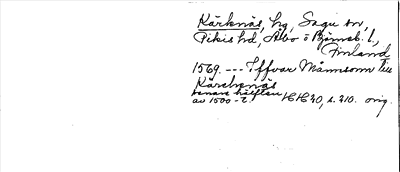 Kärknäs, hg, Sagu sn,
Pikis hd, Åbo o Björneb. l.,
Finland
1569. --- Iffvar Månsson till
Kärcknäs
senare hälften
av 1500-t. HH 20, s. 210. orig.